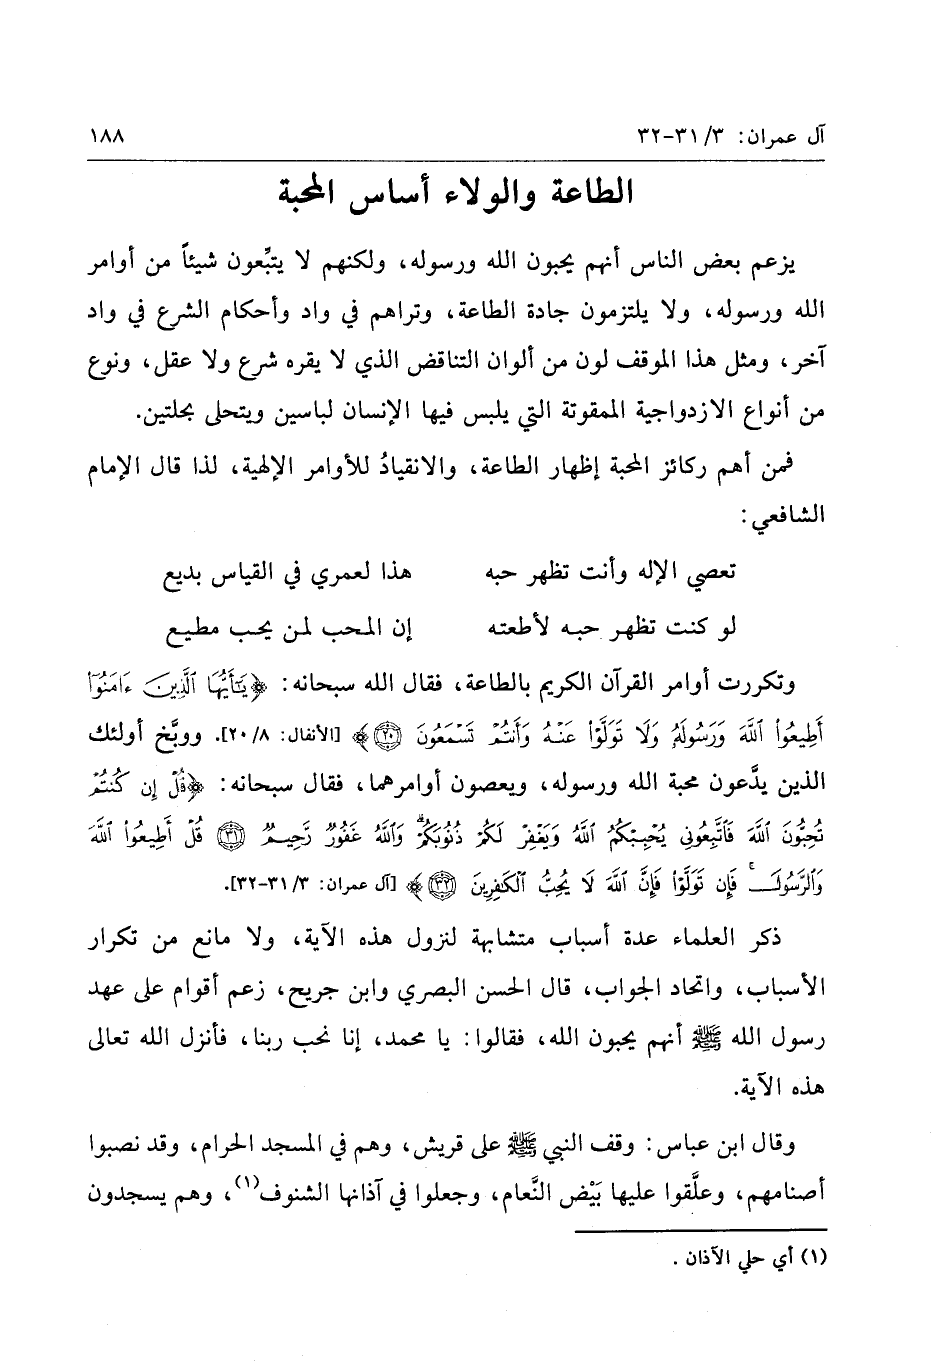 آل عمران: ٣/ ٣١-٣٢ ١٨٨
الطاعة والولاء أساس المحبة
يزعم بعض الناس أنهم يحبون الله ورسوله، ولكنهم لا يتبِّعون شيئاً من أوامر
الله ورسوله، ولا يلتزمون جادة الطاعة، وتراهم في واد وأحكام الشرع في واد
آخر، ومثل هذا الموقف لون من ألوان التناقض الذي لا يقره شرع ولا عقل، ونوع
من أنواع الازدواجية الممقوتة التي يلبس فيها الإنسان لباسين ويتحلى بحلتين.
فمن أهم ركائز المحبة إظهار الطاعة، والانقيادُ للأوامر الإلهية، لذا قال الإمام
الشافعي:
تعصي الإله وأنت تظهر حبه هذا لعمري في القياس بديع
لو كنت تظهر حبه لأطعته إن المحب لمن يحب مطيع
وتكررت أوامر القرآن الكريم بالطاعة، فقال الله سبحانه: ﴿يَٰٓأَيُّهَا ٱلَّذِينَ ءَامَنُوٓا۟
أَطِيعُوا۟ ٱللَّهَ وَرَسُولَهُۥ وَلَا تَوَلَّوْا۟ عَنْهُ وَأَنتُمْ تَسْمَعُونَ ۝٢٠﴾ [الأنفال: ٨/ ٢٠]. ووبَّخ أولئك
الذين يدَّعون محبة الله ورسوله، ويعصون أوامرهما، فقال سبحانه: ﴿قُلْ إِن كُنتُمْ
تُحِبُّونَ ٱللَّهَ فَٱتَّبِعُونِى يُحْبِبْكُمُ ٱللَّهُ وَيَغْفِرْ لَكُمْ ذُنُوبَكُمْ ۗ وَٱللَّهُ غَفُورٌ رَّحِيمٌ ۝٣١ قُلْ أَطِيعُوا۟ ٱللَّهَ
وَٱلرَّسُولَ ۖ فَإِن تَوَلَّوْا۟ فَإِنَّ ٱللَّهَ لَا يُحِبُّ ٱلْكَٰفِرِينَ ۝٣٢﴾ [آل عمران: ٣/ ٣١-٣٢].
ذكر العلماء عدة أسباب متشابهة لنزول هذه الآية، ولا مانع من تكرار
الأسباب، واتحاد الجواب، قال الحسن البصري وابن جريح، زعم أقوام على عهد
رسول الله ﷺ أنهم يحبون الله، فقالوا: يا محمد، إنا نحب ربنا، فأنزل الله تعالى
هذه الآية.
وقال ابن عباس: وقف النبي ﷺ على قريش، وهم في المسجد الحرام، وقد نصبوا
أصنامهم، وعلَّقوا عليها بَيْض النَّعام، وجعلوا في آذانها الشنوف(١)، وهم يسجدون
(١) أي حلي الآذان.